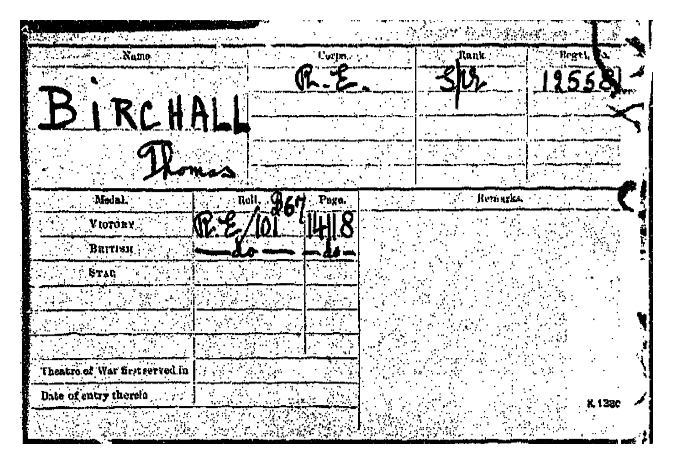 Name Corps. Rank Regtl. No.
BIRCHALL R.E. Spr 12558
Thomas
Medal. Roll. Page. Remarks.
267
VICTORY R.E/101 1418
BRITISH — do — — do —
STAR
Theatre of War first served in
Date of entry therein
K. 1380